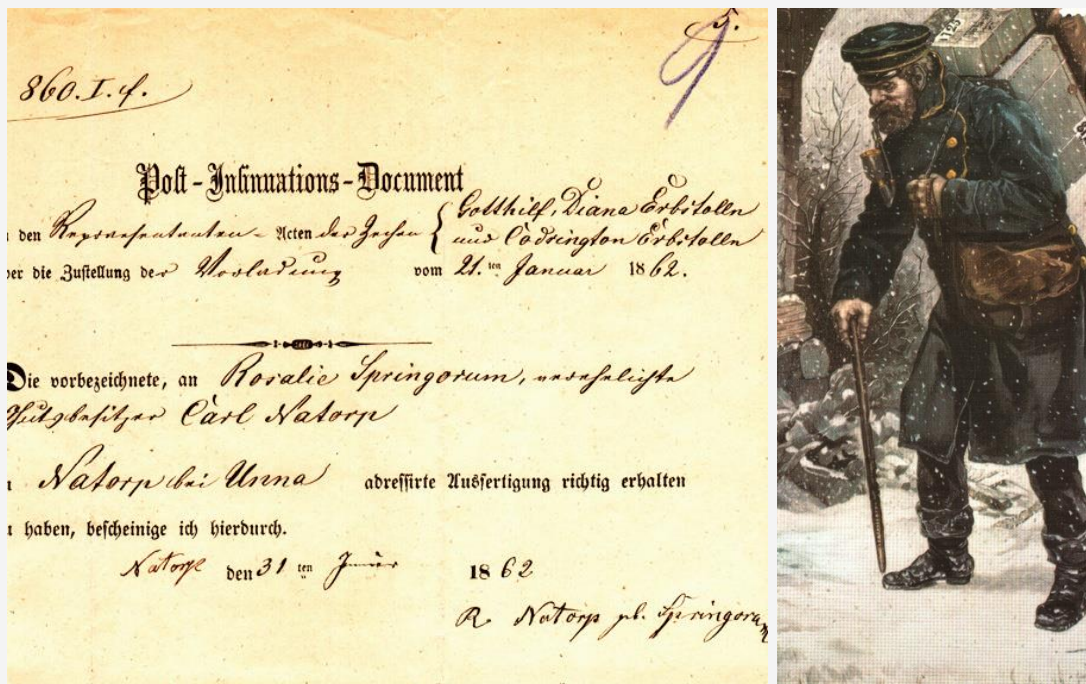 5.
860. I. f.
Post-Insinuations-Document
den Repraesentanten-Acten der Zechen { Gotthilf, Diana Erbstolln
und Codrington Erbstolln
er die Zustellung der Vorladung vom 21.ten Januar 1862.
Die vorbezeichnete, an Rosalie Springorum, verehelichte
Gutsbesitzer Carl Natorp
Natorp bei Unna adressirte Ausfertigung richtig erhalten
haben, bescheinige ich hierdurch.
Natorp den 31 ten 1862
R. Natorp gb. Springorum